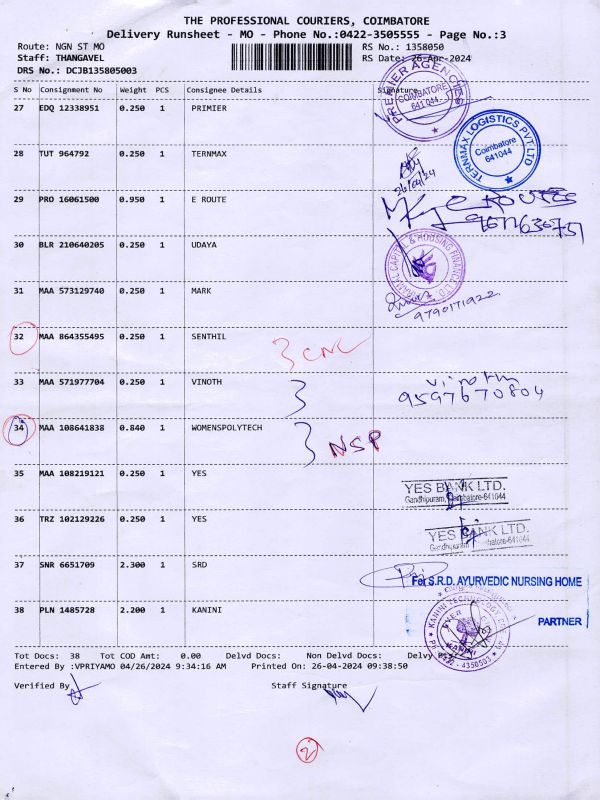 THE PROFESSIONAL COURIERS, COIMBATORE
Delivery Runsheet - MO - Phone No.:0422-3505555 - Page No.:3
Route: NGN ST MO RS No.: 1358050
Staff: THANGAVEL RS Date: 26-Apr-2024
DRS No.: DCJB135805003
S No Consignment No Weight PCS Consignee Details Signature
27 EDQ 12338951 0.250 1 PRIMIER
PREMIER AGENCIES
COIMBATORE
641 044.
28 TUT 964792 0.250 1 TERNMAX
TERNMAX LOGISTICS PVT LTD
Coimbatore
641044
26/04/24
29 PRO 16061500 0.950 1 E ROUTE
E ROUTES
30 BLR 210640205 0.250 1 UDAYA
CAPITAL & HOUSING FINANCE LTD.
31 MAA 573129740 0.250 1 MARK
9790171922
32 MAA 864355495 0.250 1 SENTHIL
CNC
33 MAA 571977704 0.250 1 VINOTH
Vinoth
9597670804
34 MAA 108641838 0.840 1 WOMENSPOLYTECH
NSP
35 MAA 108219121 0.250 1 YES
YES BANK LTD.
Gandhipuram, Coimbatore-641044
36 TRZ 102129226 0.250 1 YES
YES BANK LTD.
Gandhipuram, Coimbatore-641044
37 SNR 6651709 2.300 1 SRD
For S.R.D. AYURVEDIC NURSING HOME
38 PLN 1485728 2.200 1 KANINI
PARTNER
KANINI TECHNOLOGY
KANINI
4350503
Tot Docs: 38 Tot COD Amt: 0.00 Delvd Docs: Non Delvd Docs: Delvy
Entered By :VPRIYAMO 04/26/2024 9:34:16 AM Printed On: 26-04-2024 09:38:50
Verified By Staff Signature
2